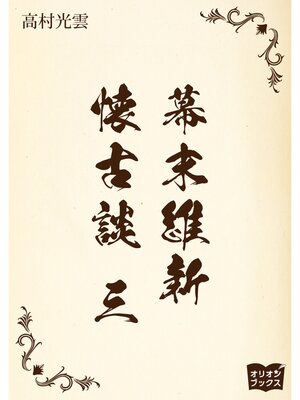 高村光雲
幕末維新
懐古談 三
オリオン
ブックス